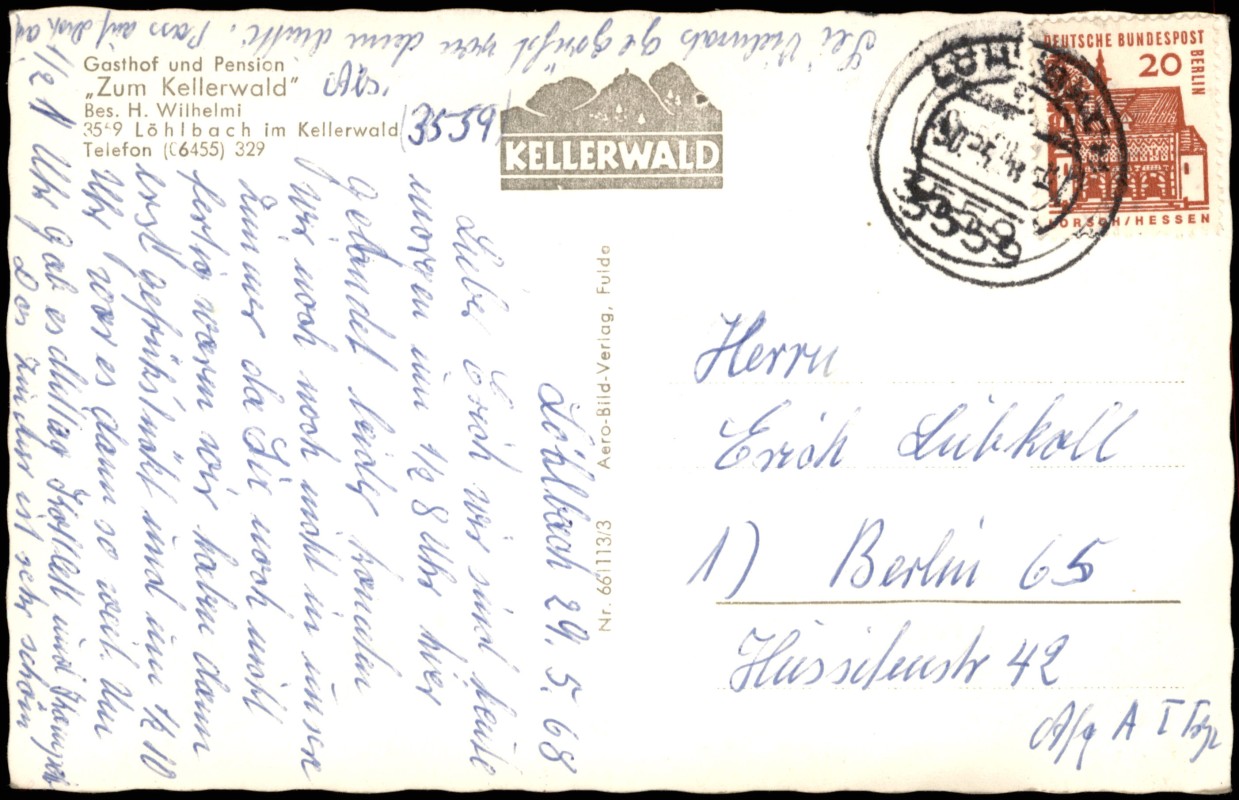 Gasthof und Pension
„Zum Kellerwald"
Bes. H. Wilhelmi
3559 Löhlbach im Kellerwald
Telefon (06455) 329
(3559)
KELLERWALD
DEUTSCHE BUNDESPOST
BERLIN
20
LORSCH/HESSEN
3559
Nr. 661113/3 Aero-Bild-Verlag, Fulda
Löhlbach 29.5.68
Lieber Erich wir sind heute
morgen um 1/2 8 Uhr hier
gelandet leider konnten
wir noch noch nicht in unser
Zimmer da Sie noch nicht
fertig waren wir haben dann
erst gefrühstückt und um 1/2 10
Uhr war es dann so weit. Um
1/2 1 Uhr gab es Mittag Kotlett und
Das Zimmer ist sehr schön
Sei vielmals gegrüßt von deine Mutti. Pass auf dich auf
Herrn
Erich Lübkoll
1) Berlin 65
Hussitenstr 42